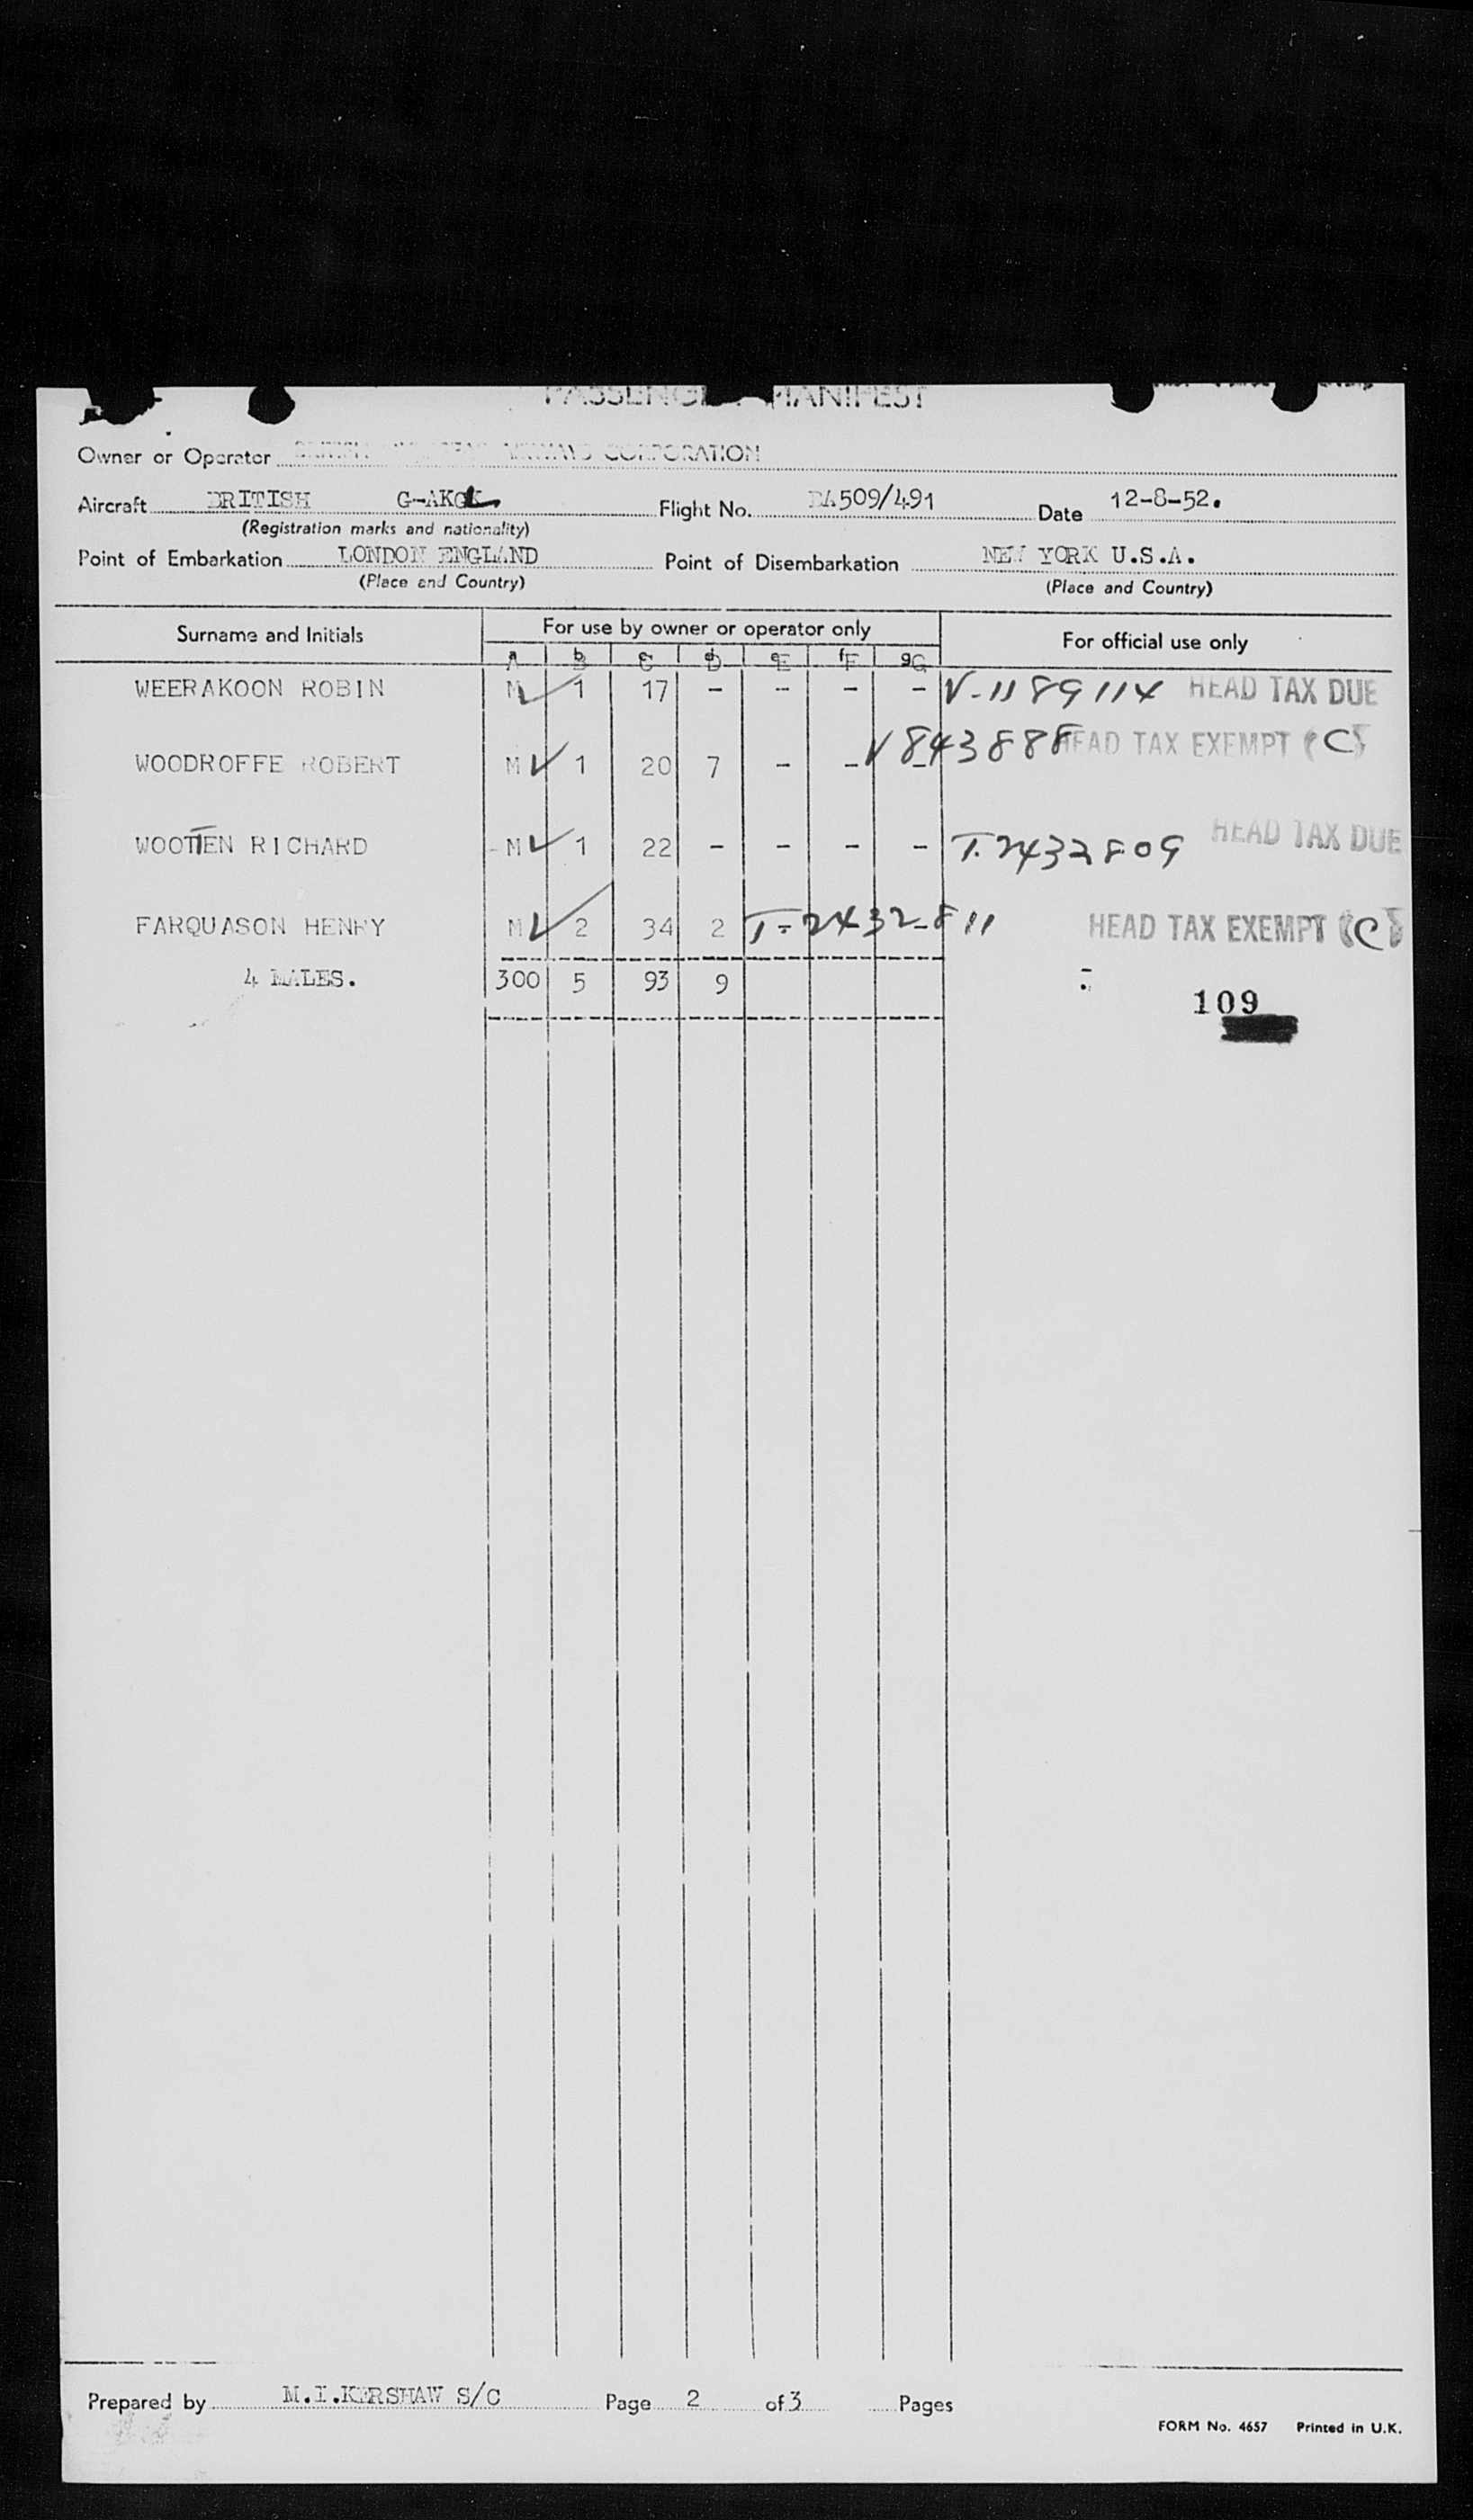 PASSENGER MANIFEST
Owner or Operator AIRWAYS CORPORATION
Aircraft BRITISH G-AKGL Flight No. BA509/491 Date 12-8-52.
(Registration marks and nationality)
Point of Embarkation LONDON ENGLAND Point of Disembarkation NEW YORK U.S.A.
(Place and Country) (Place and Country)
Surname and Initials For use by owner or operator only For official use only
a b c d e f g
A B C D E F G
WEERAKOON ROBIN M 1 17 - - - - V-1189114 HEAD TAX DUE
WOODROFFE ROBERT M 1 20 7 - - - V843888 HEAD TAX EXEMPT (C)
WOOTTEN RICHARD M 1 22 - - - - T.2432809 HEAD TAX DUE
FARQUASON HENRY M 2 34 2 T-2432811 HEAD TAX EXEMPT (C)
4 MALES. 300 5 93 9
109
Prepared by M.I.KERSHAW S/C Page 2 of 3 Pages
FORM No. 4657 Printed in U.K.